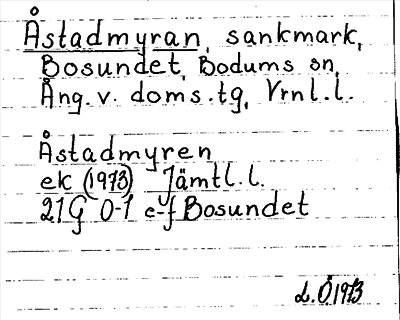 Åstadmyran, sankmark,
Bosundet, Bodums sn,
Ång. v. doms. tg, Vrnl. l.
Åstadmyren
ek (1973) Jämtl. l.
21G 0-1 e-f Bosundet
L. Ö 1973